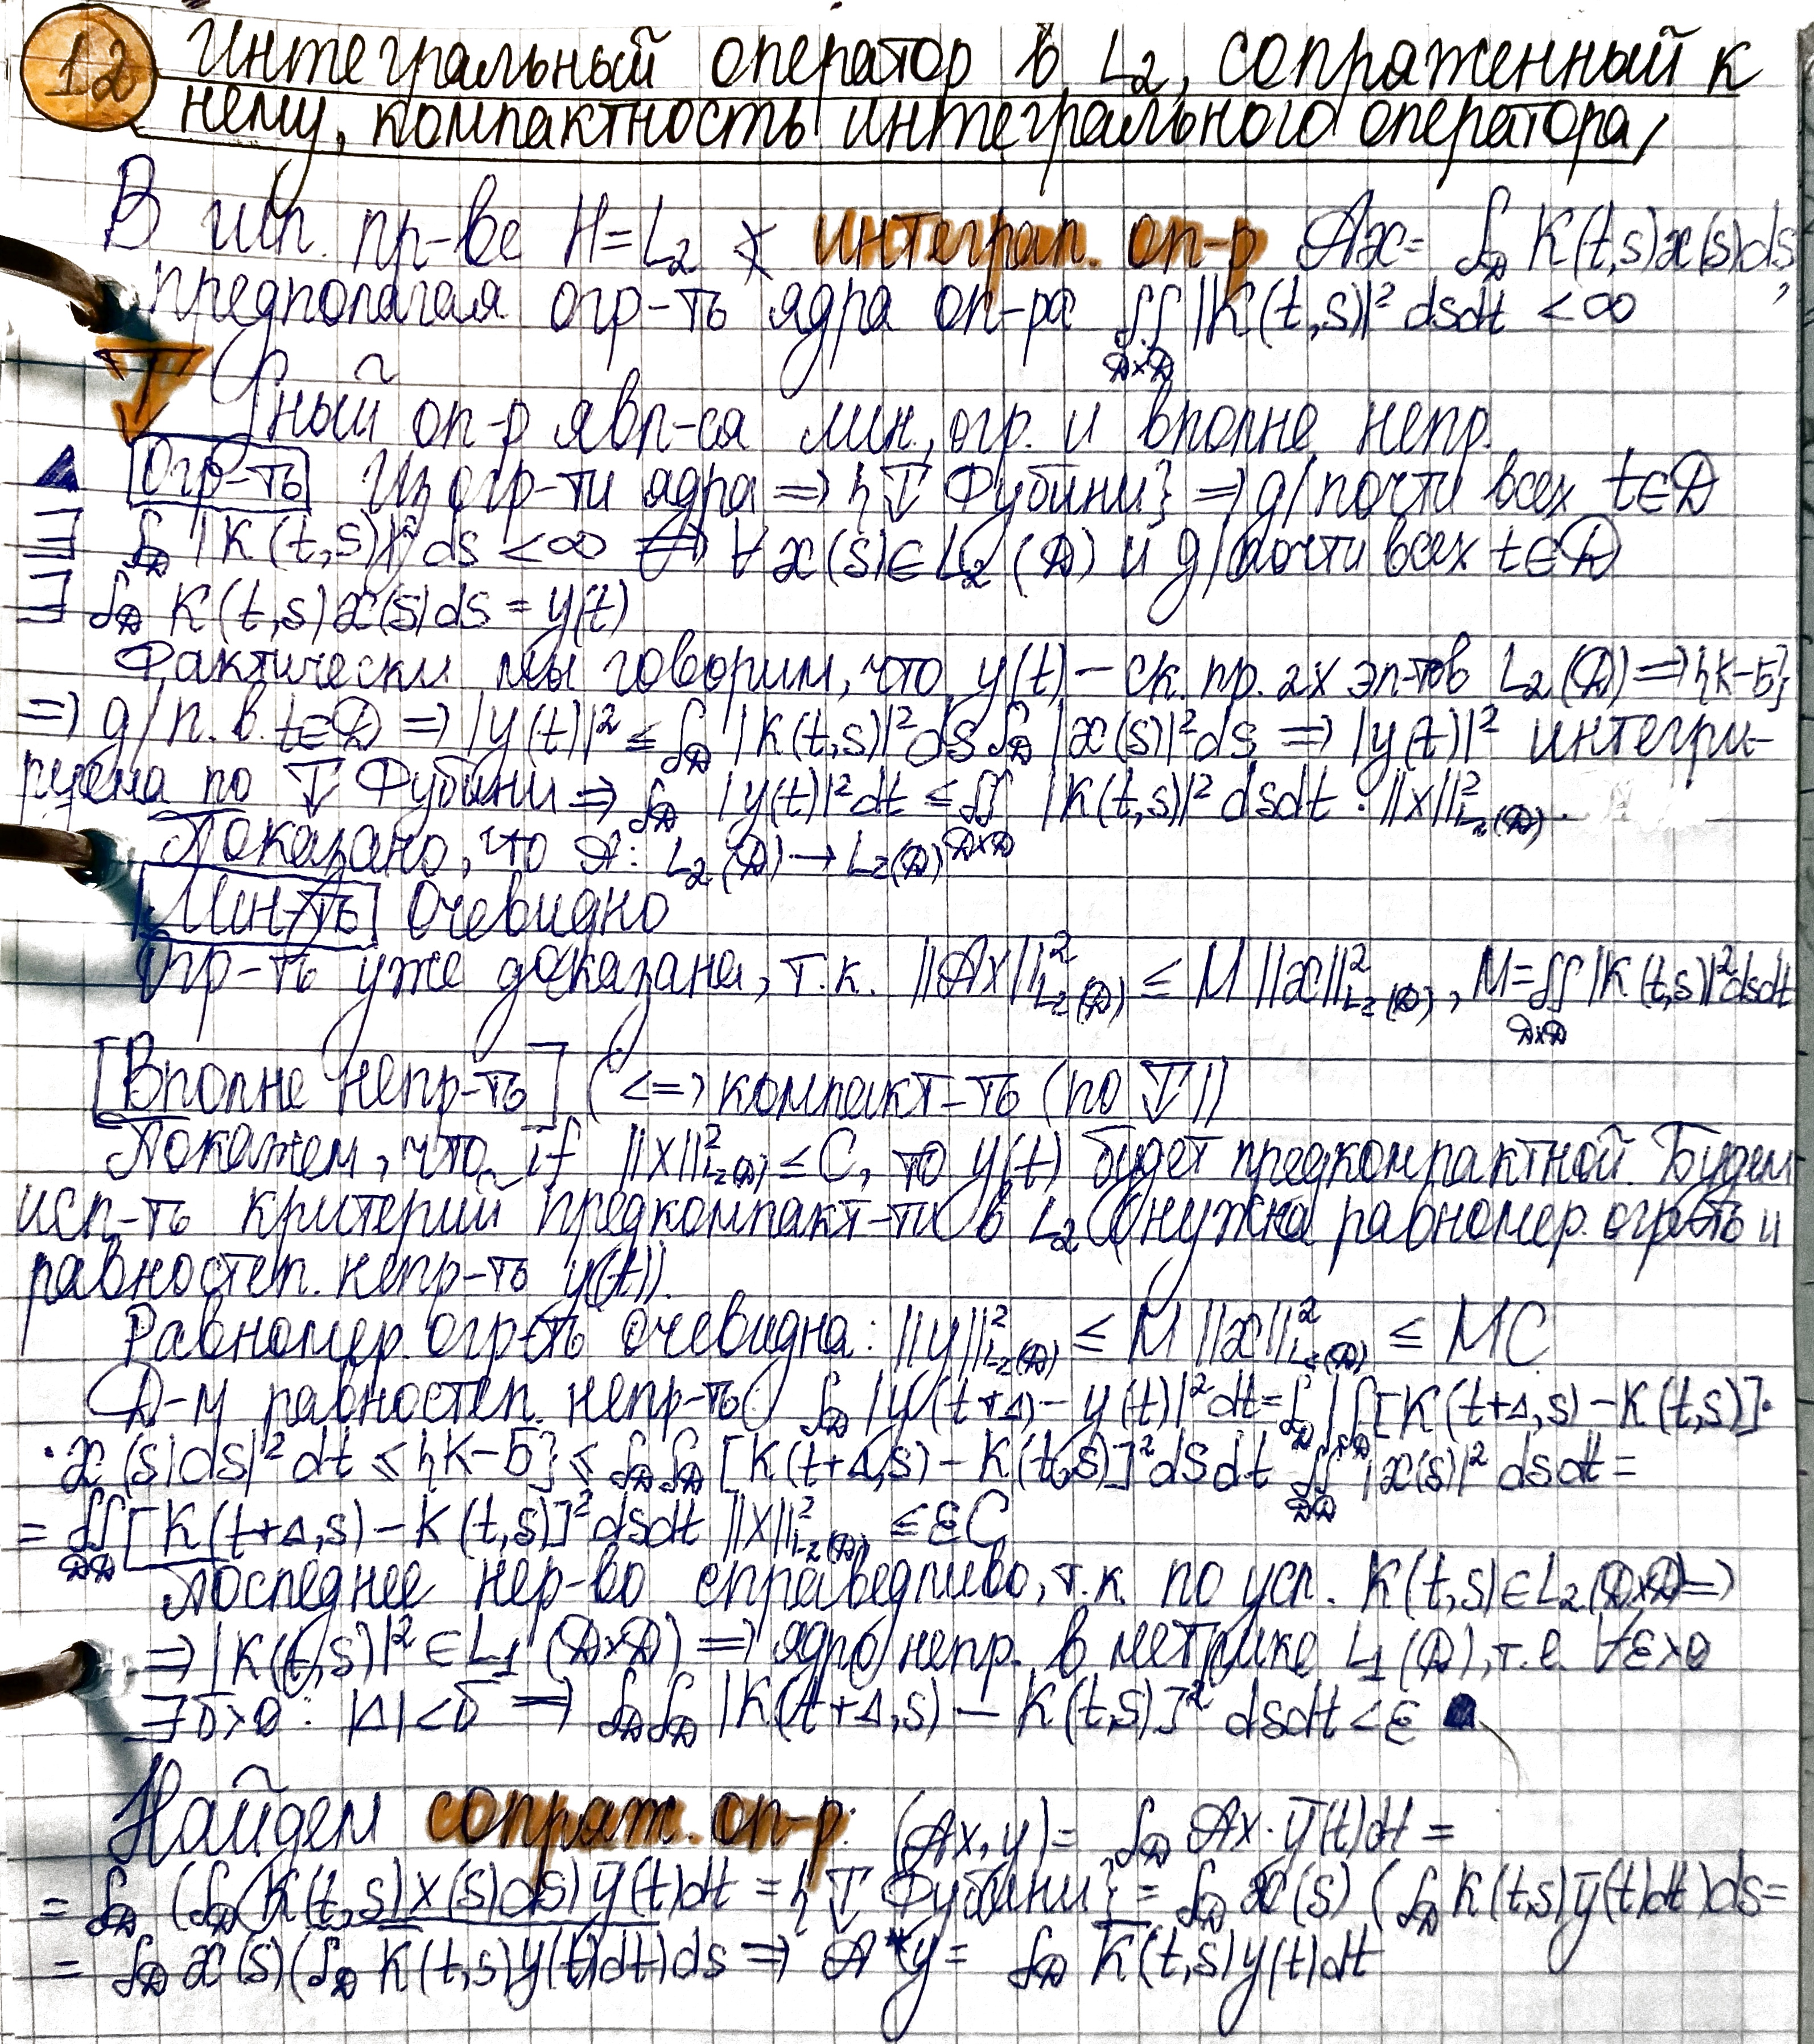 12 Интегральный оператор в L₂, сопряженный к
нему, компактность интегрального оператора,
В гил. пр-ве H=L₂ интеграл. оп-р Ax= ∫_D K(t,s)x(s)ds,
предполагая огр-ть ядра оп-ра ∬_{D×D} |K(t,s)|² dsdt < ∞
T ный оп-р явл-ся лин., огр. и вполне непр.
▲ [Огр-ть] Из огр-ти ядра => {T Фубини} => д/почти всех t∈D
∃ ∫_D |K(t,s)|² ds < ∞ => ∀ x(s)∈L₂(D) и д/почти всех t∈D
∃ ∫_D K(t,s)x(s)ds = y(t)
Фактически мы говорим, что y(t) – ск. пр. 2х эл-тов L₂(D) => {К-Б}
=> д/п. в. t∈D => |y(t)|² ≤ ∫_D |K(t,s)|² ds ∫_D |x(s)|² ds => |y(t)|² интегри-
руема по T Фубини => ∫_D |y(t)|² dt ≤ ∬_{D×D} |K(t,s)|² dsdt · ||x||²_{L₂(D)}.
Показано, что A: L₂(D) → L₂(D)
[Лин-ть] Очевидно
Огр-ть уже доказана, т.к. ||Ax||²_{L₂(D)} ≤ M ||x||²_{L₂(D)}, M = ∬_{D×D} |K(t,s)|² dsdt
[Вполне непр-ть] (<=> компакт-ть (по T))
Покажем, что if ||x||²_{L₂(D)} ≤ C, то y(t) будет предкомпактной. Будем
исп-ть критерий предкомпакт-ти в L₂ (нужна равномер. огр-ть и
равностеп. непр-ть y(t)).
Равномер. огр-ть очевидна: ||y||²_{L₂(D)} ≤ M ||x||²_{L₂(D)} ≤ MC
Д-м равностеп. непр-ть: ∫_D |y(t+Δ) – y(t)|² dt = ∫_D |∫_D [K(t+Δ,s) – K(t,s)]·
· x(s)ds|² dt ≤ {К-Б} ≤ ∫_D ∫_D [K(t+Δ,s) – K(t,s)]² dsdt ∬_{DD} |x(s)|² dsdt =
= ∬_{DD} [K(t+Δ,s) – K(t,s)]² dsdt ||x||²_{L₂(D)} ≤ εC
Последнее нер-во справедливо, т.к. по усл. K(t,s)∈L₂(D×D) =>
=> |K(t,s)|² ∈ L₁(D×D) => ядро непр. в метрике L₁(D), т.е. ∀ε>0
∃δ>0: |Δ|<δ => ∫_D ∫_D |K(t+Δ,s) – K(t,s)]² dsdt < ε
Найдем сопряж. оп-р: (Ax, y) = ∫_D Ax · ȳ(t)dt =
= ∫_D (∫_D K(t,s)x(s)ds) ȳ(t)dt = {T Фубини} = ∫_D x(s) (∫_D K(t,s)ȳ(t)dt)ds =
= ∫_D x(s)(∫_D K̄(t,s)y(t)dt)ds => A*y = ∫_D K̄(t,s)y(t)dt